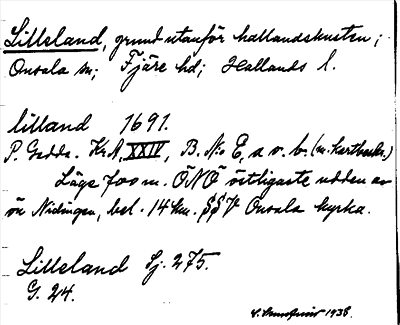 Lilleland, grund utanför hallandskusten;
Onsala sn; Fjäre hd; Hallands l.
lilland 1691.
P. Gedda. Kr.A, XXIV, B. No E, a v. b. (m. kartbeskr.)
Läge 700 m. ÖNÖ östligaste udden av
ön Nidingen, bel. 14 km. SSV Onsala kyrka.
Lilleland Sj. 275.
G. 24.
1938